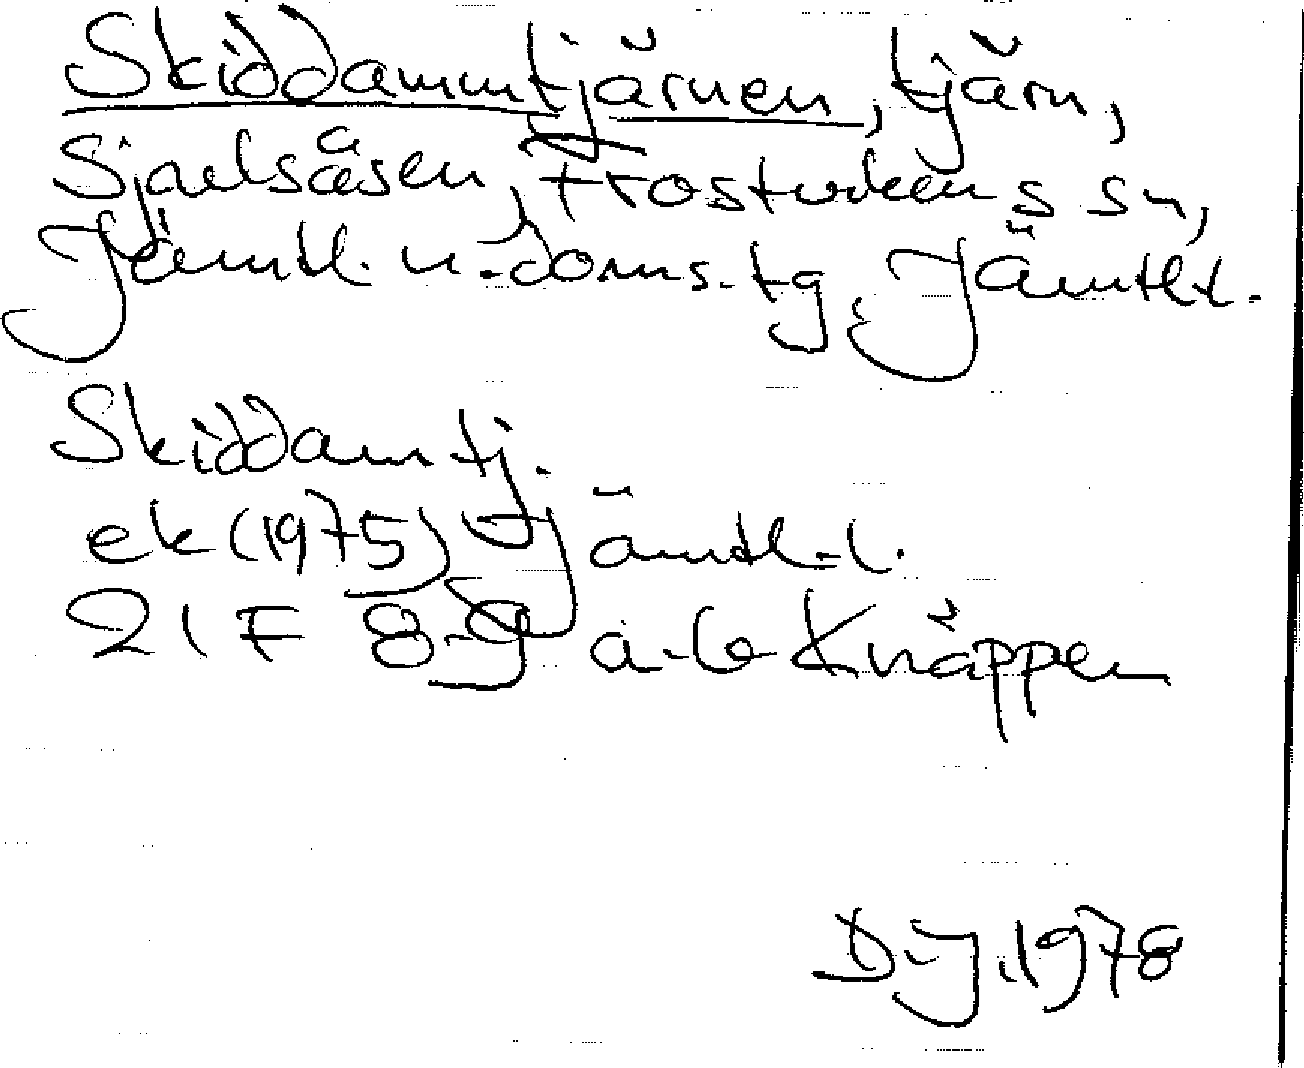 Skiddammtjärnen, tjärn,
Sjaelsåsen, Frostvikens sn,
Jämtl. n. doms. tg, Jämtl l.
Skiddamtj.
ek (1975) Jämtl. l.
21 F 8-9 a-b Knäppen
D. J. 1978